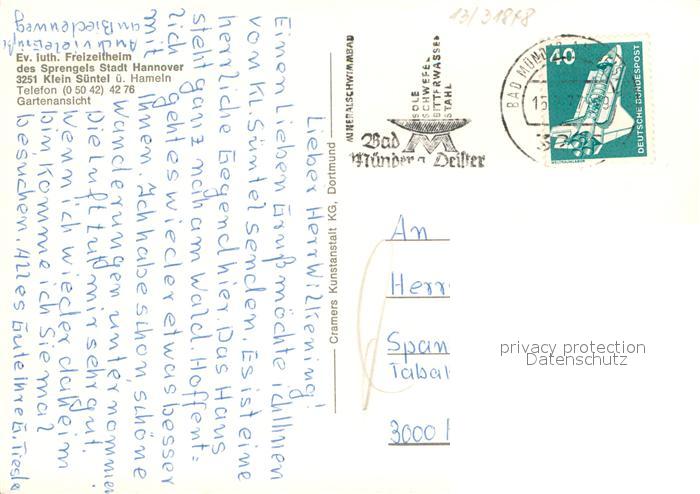 Ev. luth. Freizeitheim
des Sprengels Stadt Hannover
3251 Klein Süntel ü. Hameln
Telefon (0 50 42) 42 76
Gartenansicht
Lieber Herr Wilkening!
Einen lieben Gruß möchte ich Ihnen
vom Süntel senden. Es ist eine
herrliche Gegend hier. Das Haus
steht ganz nah am Wald. Hoffent=
lich geht es wieder etwas besser
mit Ihnen. Ich habe schon, schöne
Wanderungen unternommen
Die Luft tut mir sehr gut.
Wenn ich wieder daheim
bin, komme ich Sie mal
besuchen. Alles Gute Ihre E. Tiesla
Auch viele Grüße
Cramers Kunstanstalt KG, Dortmund
13/31878
MINERALSCHWIMMBAD
SOLE
SCHWEFEL
BITTERWASSER
STAHL
Bad
Münder a. Deister
BAD MÜNDER
40
DEUTSCHE BUNDESPOST
An
Herr
Span
Tabak
3000
privacy protection
Datenschutz